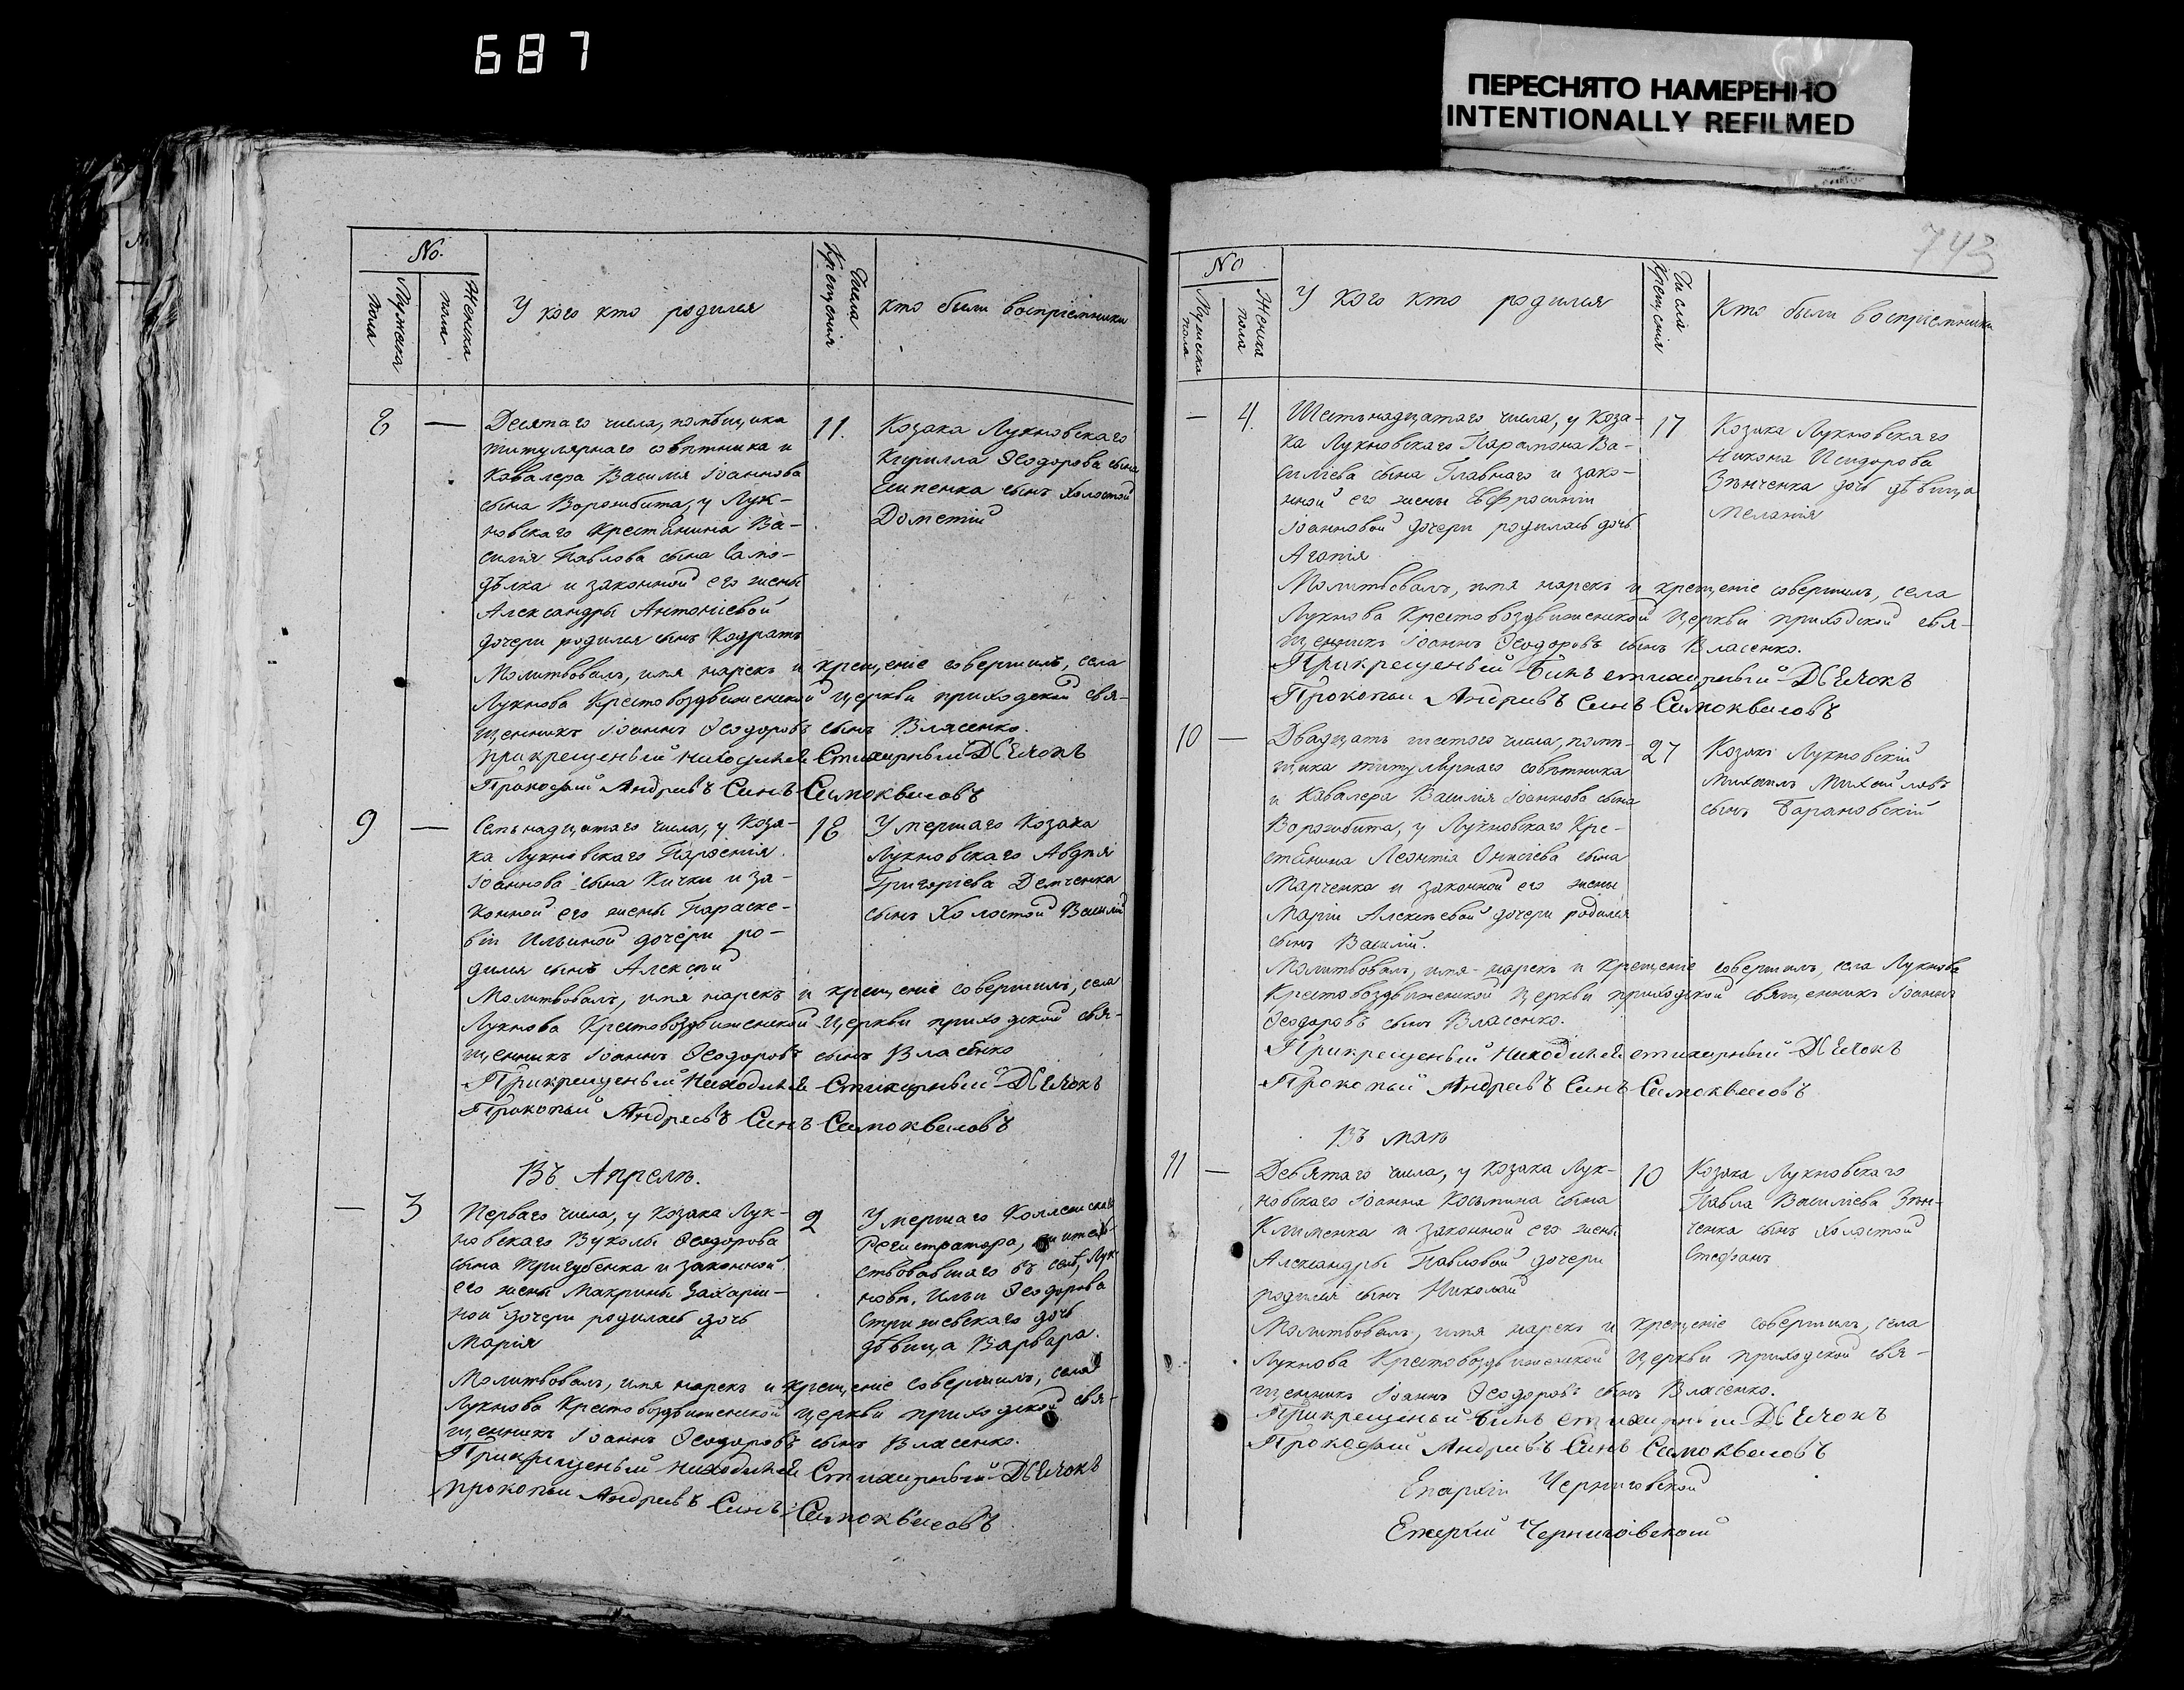 687
ПЕРЕСНЯТО НАМЕРЕННО
INTENTIONALLY REFILMED
No.
Мужеска пола
Женска пола
У кого кто родился
Числа Крещенія
Кто были воспріемники
8 — Десятаго числа, помѣщика
титулярнаго совѣтника и
Кавалера Василія Іоаннова
сына Ворожбита, у Лук-
новскаго Крестянина Ва-
силія Павлова сына Само-
дѣлка и законной его жены
Александры Антоніевой
дочери родился сынъ Кодратъ
11.
Козака Лукновскаго
Кирилла Ѳеодорова сына
Есипенка сынъ Холостой
Дометій
Молитвовалъ, имя нарекъ и крещеніе совершилъ, села
Лукнова Крестовоздвиженской церкви приходской свя-
щенникъ Іоаннъ Ѳеодоровъ сынъ Власенко.
Прикрещеныи находился Стихарныи Дсячокъ
Прокофий Андреевъ Синъ Самоквасовъ
9 — Семьнадцатаго числа, у Коза-
ка Лукновскаго Парѳенія
Іоаннова сына Кички и за-
конной его жены Параске-
віи Ильиной дочери ро-
дился сынъ Алексій
18
Умершаго Козака
Лукновскаго Авдѣя
Григоріева Демченка
сынъ Холостой Василій
Молитвовалъ, имя нарекъ и крещеніе совершилъ, села
Лукнова Крестовоздвиженской Церкви приходской свя-
щенникъ Іоаннъ Ѳеодоровъ сынъ Власенко
Прикрещеныи находился Стихарныи Дсячокъ
Прокопий Андреевъ Синъ Самоквасовъ
Въ Апрелѣ.
— 3 Перваго числа, у Козака Лук-
новскаго Вуколы Ѳеодорова
сына Тригубенка и законной
его жены Макрины Захарии-
ной дочери родилась дочь
Марія
2
Умершаго Коллежскаго
Регистратора, жител-
ствовавшаго въ селѣ Лук-
новѣ, Ильи Ѳеодорова
Стрижевскаго дочь
дѣвица Варвара.
Молитвовалъ, имя нарекъ и крещеніе совершилъ, села
Лукнова Крестовоздвиженской церкви приходской свя-
щенникъ Іоаннъ Ѳеодоровъ сынъ Власенко.
Прикрещеныи находился Стихарныи Дсячокъ
Прокопии Андреевъ Синъ Самоквасовъ
743
No
Мужеска пола
Женска пола
У кого кто родился
Числа Крещенія
Кто были воспріемники
— 4. Шестьнадцатаго числа, у Коза-
ка Лукновскаго Парамона Ва-
силіева сына Главнаго и зако-
нной его жены Евфросиніи
Іоанновой дочери родилась дочь
Агапія
17
Козака Лукновскаго
Никона Исидорова
Зѣнченка дочь дѣвица
Меланія
Молитвовалъ, имя нарекъ и крещеніе совершилъ, села
Лукнова Крестовоздвиженской Церкви приходской свя-
щенникъ Іоаннъ Ѳеодоровъ сынъ Власенко.
Прикрещеныи билъ стихарныи Дсячокъ
Прокопии Андреевъ Синъ Самоквасовъ
10 — Двадцать шестого числа, помѣ-
щика титулярнаго совѣтника
и Кавалера Василія Іоаннова сына
Ворожбита, у Лукновскаго Кре-
стянина Леонтія Онисіева сына
Марченка и законной его жены
Маріи Алексѣевой дочери родился
сынъ Василій.
27
Козакъ Лукновскій
Михаилъ Михайловъ
сынъ Барановскій
Молитвовалъ, имя нарекъ и Крещеніе совершилъ, села Лукнова
Крестовоздвиженской Церкви приходской священникъ Іоаннъ
Ѳеодоровъ сынъ Власенко.
Прикрещеныи находился стихарныи Дсячокъ
Прокопий Андреевъ Синъ Самоквасовъ
Въ маѣ
11 — Девятаго числа, у Козака Лук-
новскаго Іоанна Косьмина сына
Клименка и законной его жены
Александры Павловой дочери
родился сынъ Николай
10
Козака Лукновскаго
Павла Василіева Зѣн-
ченка сынъ холостой
Стефанъ
Молитвовалъ, имя нарекъ и крещеніе совершилъ, села
Лукнова Крестовоздвиженской церкви приходской свя-
щенникъ Іоаннъ Ѳеодоровъ сынъ Власенко.
Прикрещеныи билъ стихарныи Дсячокъ
Прокофий Андреевъ Синъ Самоквасовъ
Епархіи Черниговской
Черниговской